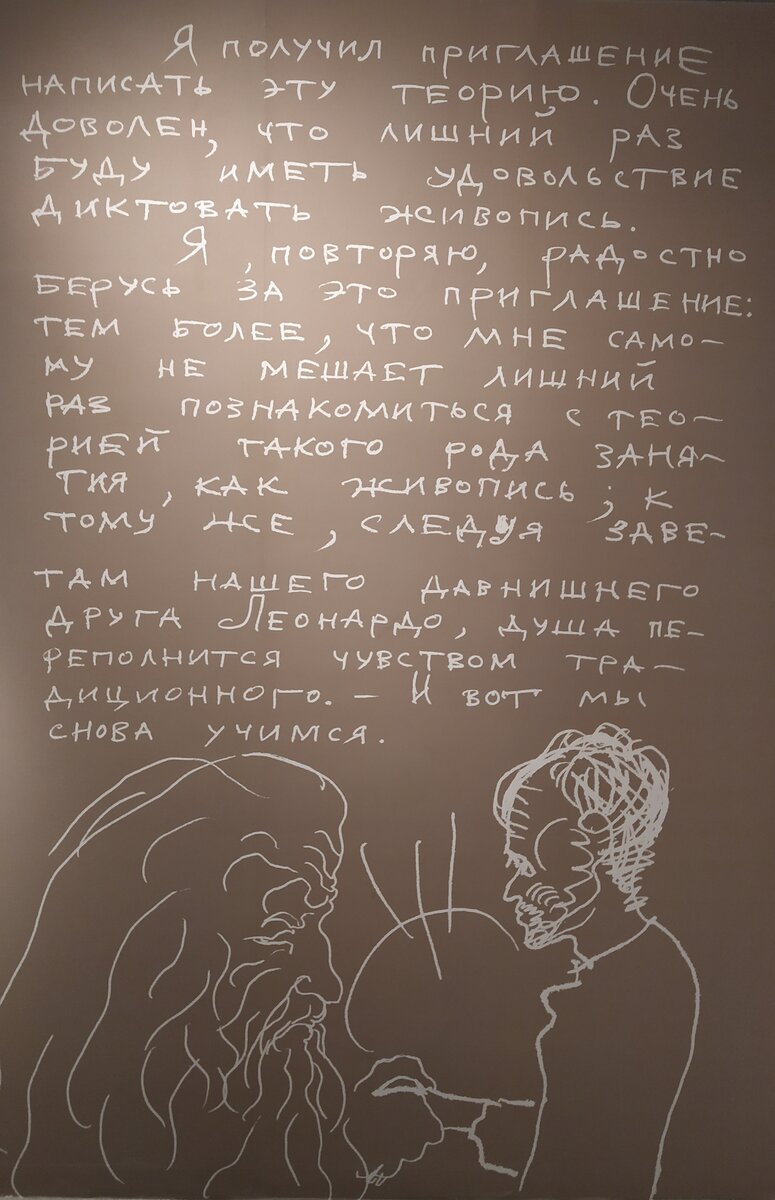 Я получил приглашение
написать эту теорию. Очень
доволен, что лишний раз
буду иметь удовольствие
диктовать живопись.
Я, повторяю, радостно
берусь за это приглашение:
тем более, что мне само-
му не мешает лишний
раз познакомиться с тео-
рией такого рода заня-
тия, как живопись; к
тому же, следуя заве-
там нашего давнишнего
друга Леонардо, душа пе-
реполнится чувством тра-
диционного. – И вот мы
снова учимся.